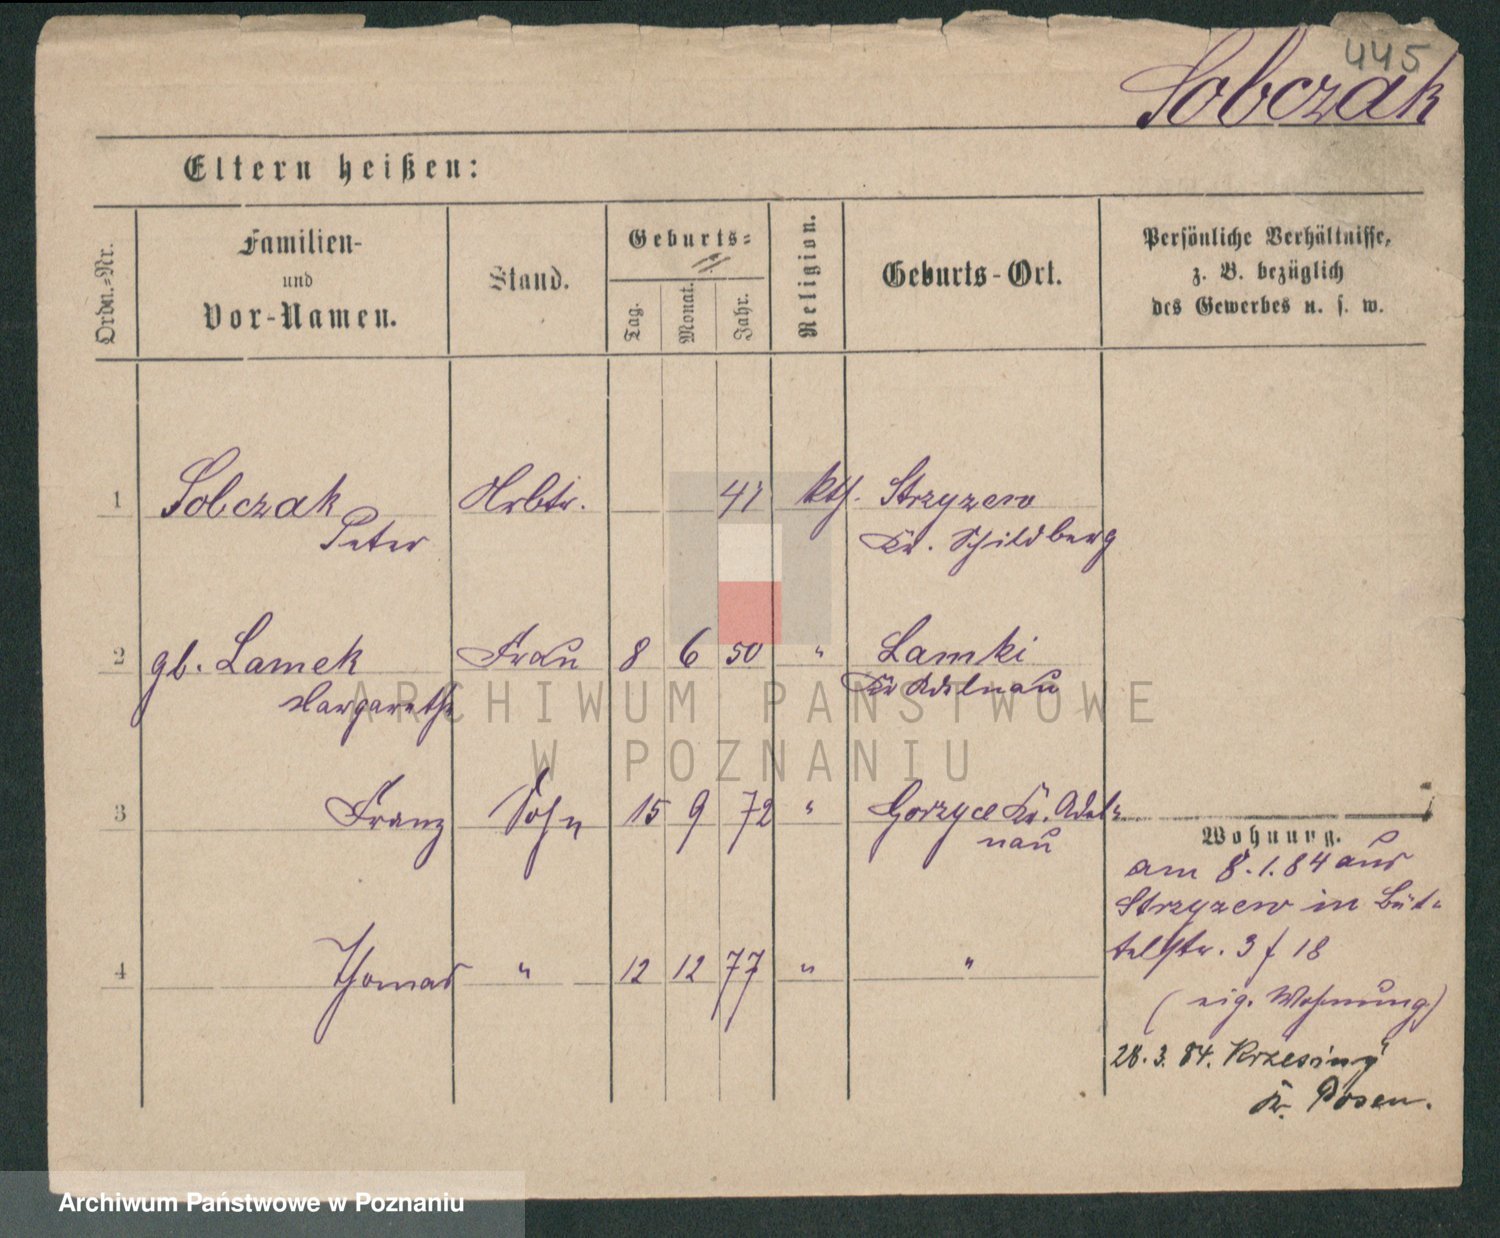 445
Sobczak
Eltern heißen:
Ordn.-Nr.
Familien-
und
Vor-Namen.
Stand.
Geburts-
Tag.
Monat.
Jahr.
Religion.
Geburts-Ort.
Persönliche Verhältnisse,
z. B. bezüglich
des Gewerbes u. s. w.
1 Sobczak Arbtr. 47 kth. Strzyzew
Peter Kr. Schildberg
2 gb. Lamek Frau 8 6 50 " Lamki
Margarethe Kr Adelnau
3 Franz Sohn 15 9 72 " Gorzyce Kr. Adel-
nau
4 Thomas " 12 12 77 " "
Wohnung.
am 8.1.84 aus
Strzyzew in Büt-
telstr. 3 f 18
(eig. Wohnung)
28.3.84. Krzesiny
Kr. Posen.
ARCHIWUM PAŃSTWOWE
W POZNANIU
Archiwum Państwowe w Poznaniu